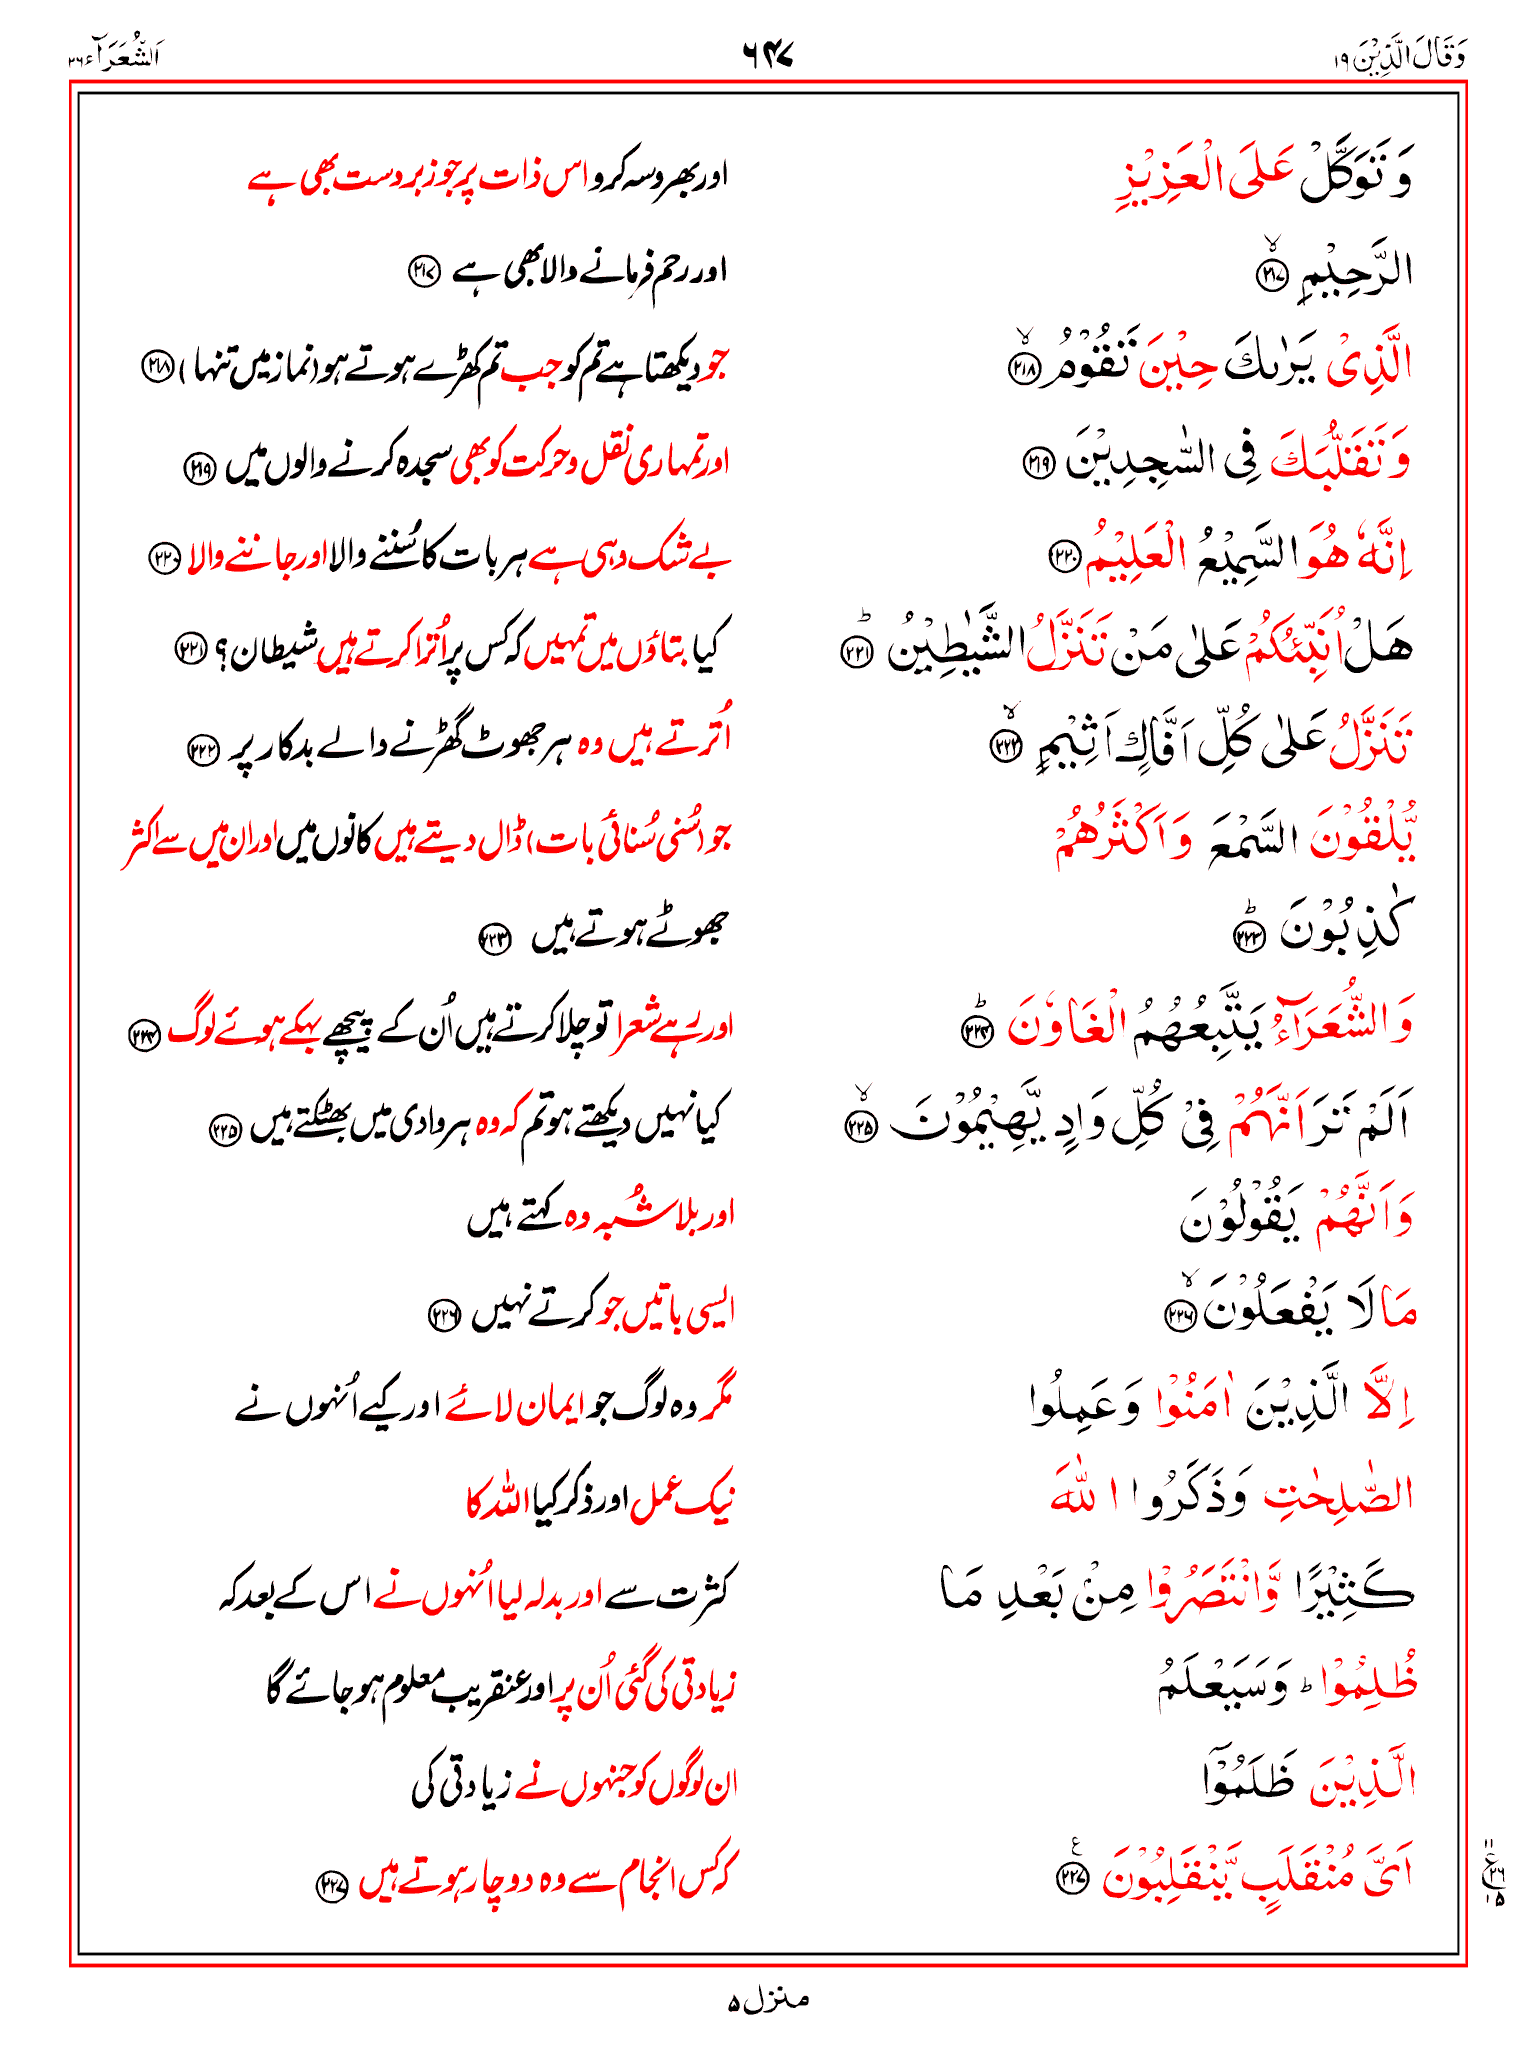 وَقَالَ الَّذِیْنَ ۱۹
۶۴۷
اَلشُّعَرَآء ۲۶
وَ تَوَكَّلْ عَلَی الْعَزِیْزِ
اور بھروسہ کرو اس ذات پر جو زبردست بھی ہے
الرَّحِیْمِ ۙ﴿۲۱۷﴾
اور رحم فرمانے والا بھی ہے ﴿۲۱۷﴾
الَّذِیْ یَرٰىكَ حِیْنَ تَقُوْمُ ۙ﴿۲۱۸﴾
جو دیکھتا ہے تم کو جب تم کھڑے ہوتے ہو (نماز میں تنہا) ﴿۲۱۸﴾
وَ تَقَلُّبَكَ فِی السّٰجِدِیْنَ ﴿۲۱۹﴾
اور تمہاری نقل و حرکت کو بھی سجدہ کرنے والوں میں ﴿۲۱۹﴾
اِنَّهٗ هُوَ السَّمِیْعُ الْعَلِیْمُ ﴿۲۲۰﴾
بے شک وہی ہے ہر بات کا سُننے والا اور جاننے والا ﴿۲۲۰﴾
هَلْ اُنَبِّئُكُمْ عَلٰی مَنْ تَنَزَّلُ الشَّیٰطِیْنُ ؕ﴿۲۲۱﴾
کیا بتاؤں میں تمہیں کہ کس پر اُترا کرتے ہیں شیطان؟ ﴿۲۲۱﴾
تَنَزَّلُ عَلٰی كُلِّ اَفَّاكٍ اَثِیْمٍ ۙ﴿۲۲۲﴾
اُترتے ہیں وہ ہر جھوٹ گھڑنے والے بدکار پر ﴿۲۲۲﴾
یُّلْقُوْنَ السَّمْعَ وَ اَكْثَرُهُمْ
جو (سُنی سُنائی بات) ڈال دیتے ہیں کانوں میں اور ان میں سے اکثر
كٰذِبُوْنَ ؕ﴿۲۲۳﴾
جھوٹے ہوتے ہیں ﴿۲۲۳﴾
وَ الشُّعَرَآءُ یَتَّبِعُهُمُ الْغَاوٗنَ ؕ﴿۲۲۴﴾
اور رہے شعرا تو چلا کرتے ہیں اُن کے پیچھے بہکے ہوئے لوگ ﴿۲۲۴﴾
اَلَمْ تَرَ اَنَّهُمْ فِیْ كُلِّ وَادٍ یَّهِیْمُوْنَ ۙ﴿۲۲۵﴾
کیا نہیں دیکھتے ہو تم کہ وہ ہر وادی میں بھٹکتے ہیں ﴿۲۲۵﴾
وَ اَنَّهُمْ یَقُوْلُوْنَ
اور بلا شُبہ وہ کہتے ہیں
مَا لَا یَفْعَلُوْنَ ۙ﴿۲۲۶﴾
ایسی باتیں جو کرتے نہیں ﴿۲۲۶﴾
اِلَّا الَّذِیْنَ اٰمَنُوْا وَ عَمِلُوا
مگر وہ لوگ جو ایمان لائے اور کیے اُنہوں نے
الصّٰلِحٰتِ وَ ذَكَرُوا اللّٰهَ
نیک عمل اور ذکر کیا اللہ کا
كَثِیْرًا وَّ انْتَصَرُوْا مِنْۢ بَعْدِ مَا
کثرت سے اور بدلہ لیا اُنہوں نے اس کے بعد کہ
ظُلِمُوْا ؕ وَ سَیَعْلَمُ
زیادتی کی گئی اُن پر اور عنقریب معلوم ہو جائے گا
الَّذِیْنَ ظَلَمُوْۤا
ان لوگوں کو جنہوں نے زیادتی کی
اَیَّ مُنْقَلَبٍ یَّنْقَلِبُوْنَ ﴿۲۲۷﴾ع
کہ کس انجام سے وہ دوچار ہوتے ہیں ﴿۲۲۷﴾
۱۱
ع ۳۶
۱۵
منزل ۵